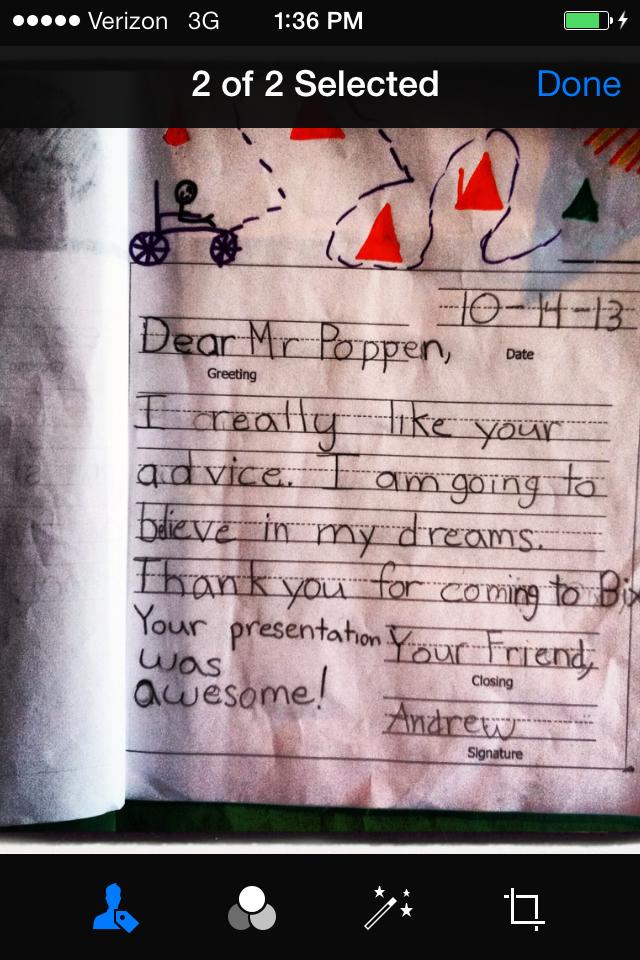 Verizon 3G 1:36 PM
2 of 2 Selected Done
10-14-13
Date
Dear Mr Poppen,
Greeting
I really like your
advice. I am going to
believe in my dreams.
Thank you for coming to Bix
Your presentation
was
awesome!
Your Friend,
Closing
Andrew
Signature